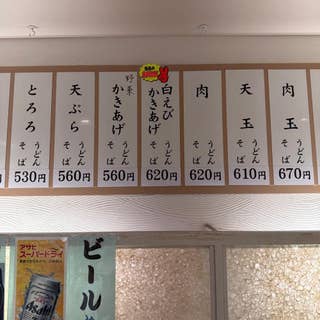 とろろ
うどん
そば
530円
天ぷら
うどん
そば
560円
野菜
かきあげ
うどん
そば
560円
白えび
かきあげ
うどん
そば
620円
肉
うどん
そば
620円
天玉
うどん
そば
610円
肉玉
うどん
そば
670円
アサヒ
スーパードライ
Asahi
ビール